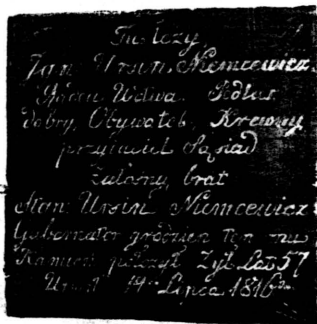 Tu leży
Jan Ursin Niemcewicz
dobry Obywatel, Krewny
przyjaciel Sąsiad
brat
Stan: Ursin Niemcewicz
Gubernator grodzien ten mu
Kamień położył Żył Lat 57
Umarł 14 Lipca 1816